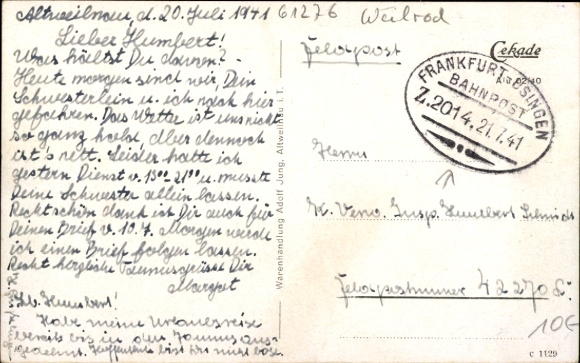 Altweilnau, d. 20. Juli 1941
61276 Weilrod
Lieber Humbert!
Was hältst Du davon? -
Heute morgen sind wir, Dein
Schwesterlein u. ich nach hier
gefahren. Das Wetter ist uns nicht
so ganz hold, aber dennoch
ist's nett. Leider hatte ich
gestern Dienst v. 13°°-21°° u. musste
Deine Schwester allein lassen.
Recht schön dank ist Dir auch für
Deinen Brief v. 10.7. Morgen werde
ich einen Brief folgen lassen.
Recht herzliche Taunusgrüsse Dir
Margot
Lb. Humbert!
Habe meine Urlaubsreise
bereits bis in den Taunus aus-
gedehnt. Hoffentlich bist Du nicht böse.
Warenhandlung Adolf Jung, Altweilnau i. T.
Feldpost
Cekade
FRANKFURT-USINGEN
BAHNPOST
Z.2014. 21.7.41
Herrn
K. Verw. Insp. Humbert Schmidt
Feldpostnummer 42270 L.
10€
C 1129